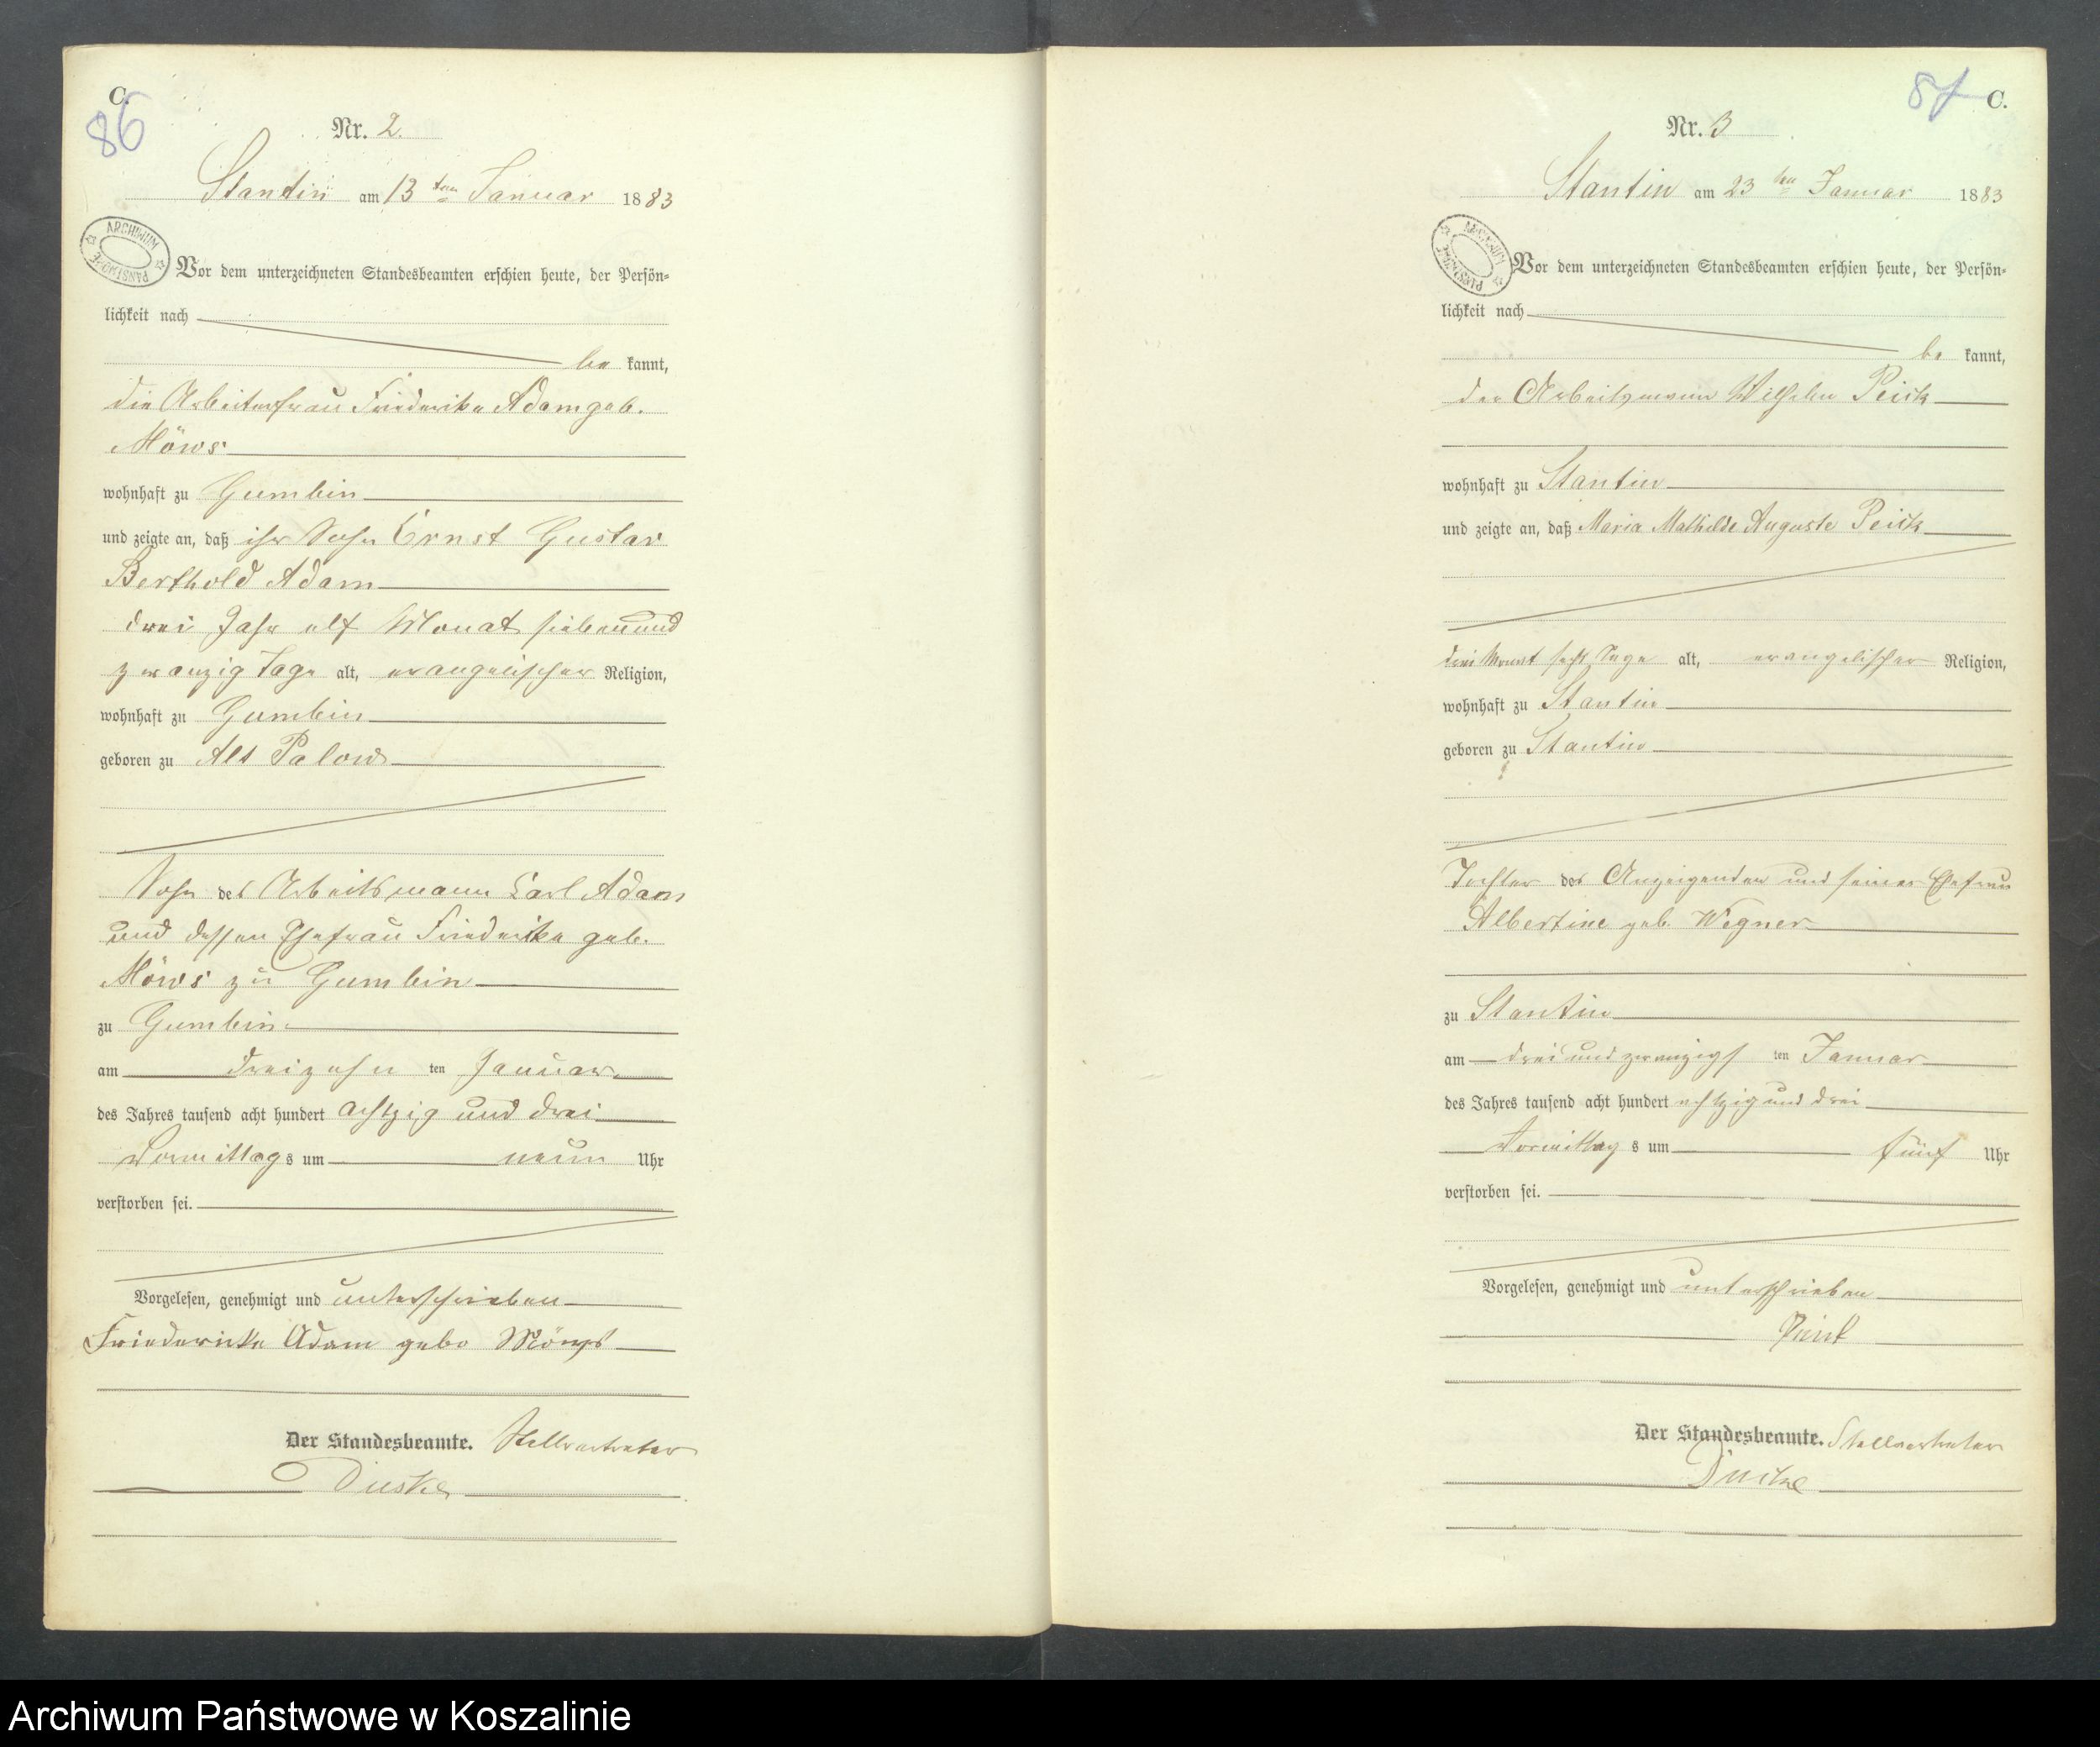 C.
86
Nr. 2.
Stantin am 13 ten Januar 1883
ARCHIWUM PAŃSTWOWE
Vor dem unterzeichneten Standesbeamten erschien heute, der Persön-
lichkeit nach
be kannt,
die Arbeiterfrau Friederike Adam geb.
Möws
wohnhaft zu Gumbin
und zeigte an, daß ihr Sohn Ernst Gustav
Berthold Adam
drei Jahr elf Monat siebenund
zwanzig Tage alt, evangelischer Religion,
wohnhaft zu Gumbin
geboren zu Alt Palow
Sohn des Arbeitsmann Carl Adam
und dessen Ehefrau Friederike geb.
Möws zu Gumbin
zu Gumbin
am dreizehn ten Januar
des Jahres tausend acht hundert achtzig und drei
Vormittags um neun Uhr
verstorben sei.
Vorgelesen, genehmigt und unterschrieben
Friedericke Adam gebo
Der Standesbeamte. Stellvertreter
87 C.
Nr. 3
Stantin am 23 ten Januar 1883
ARCHIWUM PAŃSTWOWE
Vor dem unterzeichneten Standesbeamten erschien heute, der Persön-
lichkeit nach
be kannt,
der Arbeitsmann Wilhelm Peick
wohnhaft zu Stantin
und zeigte an, daß Maria Mathilde Auguste Peick
drei Monat sechs Tage alt, evangelischer Religion,
wohnhaft zu Stantin
geboren zu Stantin
Tochter des Anzeigenden und seiner Ehefrau
Albertine geb. Wegner
zu Stantin
am dreiundzwanzigs ten Januar
des Jahres tausend acht hundert achtzig und drei
Vormittag s um fünf Uhr
verstorben sei.
Vorgelesen, genehmigt und unterschrieben
Peick
Der Standesbeamte. Stellvertreter
Archiwum Państwowe w Koszalinie